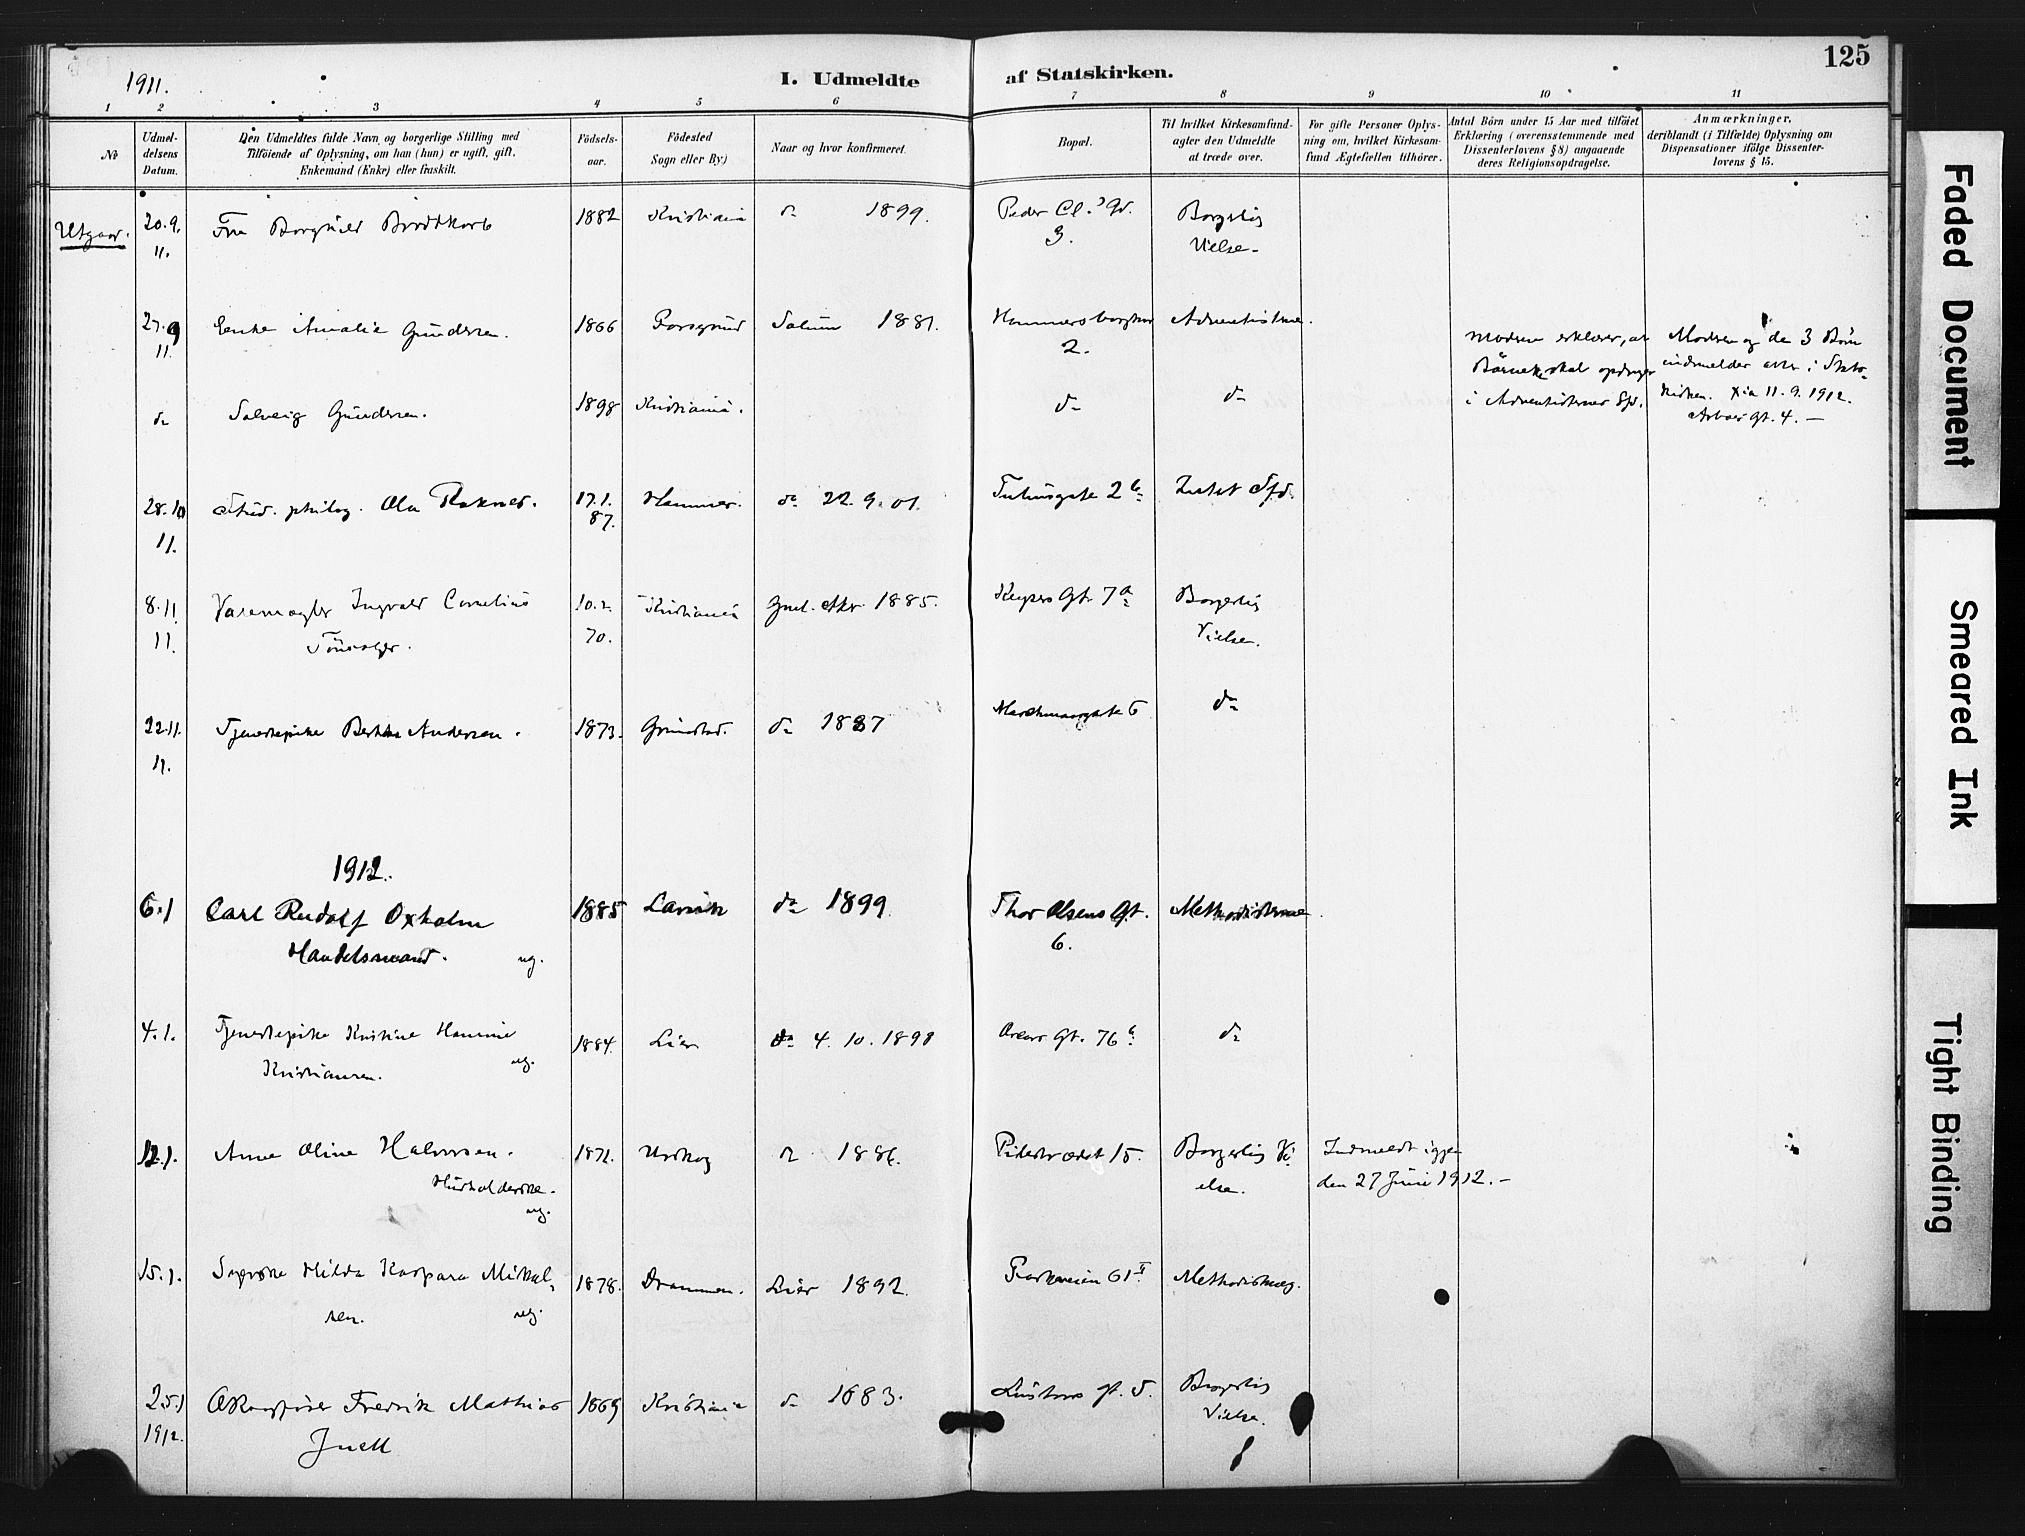 1911.
I. Udmeldte af Statskirken.
125
1 2 3 4 5 6 7 8 9 10 11
No
Udmel-
delsens
Datum.
Den Udmeldtes fulde Navn og borgerlige Stilling med
Tilföiende af Oplysning, om han (hun) er ugift, gift.
Enkemand (Enke) eller fraskilt.
Födsels-
aar.
Födested
Sogn eller By)
Naar og hvor konfirmeret.
Bopæl.
Til hvilket Kirkesamfund-
agter den Udmeldte
at træde over.
For gifte Personer Oplys-
ning om, hvilket Kirkesam-
fund Ægtefællen tilhörer.
Antal Börn under 15 Aar med tilföiet
Erklæring (overensstemmende med
Dissenterlovens § 8) angaaende
deres Religionsopdragelse.
Anmærkninger,
deriblandt (i Tilfælde) Oplysning om
Dispensationer ifölge Dissenter-
lovens § 15.
Utgaar. 20.9. Fru Borghild Brodtkorb 1882 Kristiania do 1899. Peder Cl. Gd. Borgerlig
11. 3. Vielse.
27.9 Enke Amalie Gundersen. 1866 Porsgrund Solum 1881. Hammersborgtor Adventisterne.
11. 2.
Moderen erklærer, at
Börnene skal opdrages
i Adventisternes Sfd.
Moderen og de 3 Börn
indmeldes atter i Stats-
kirken. Xia 11.9.1912.
Gt. 4.
do Solveig Gundersen. 1898 Kristiania. do do
28.10 Stud. philog. Ola Raknes. 17.1. Hammer. do 22.9.01. Tullinsgate 2b Intet Sfd.
11. 87.
8.11. Varemægler Ingvald Cornelius 10.2. Kristiania Gml. Aker 1885. Keysers Gt. 7a Borgerlig
11. 70. Vielse.
22.11. Tjenestepike Berthe Andersen. 1873. Grimstad. do 1887 6 do
11.
1912.
6.1 Carl Rudolf Oxholm 1885 Larvik do 1899. Thor Olsens Gt. Methodisterne.
Handelsmand. ug. 6.
4.1. Tjenestepike Kristine Hannie 1884. Lier do 4.10.1898 Gt. 76b do
Kristiansen. ug.
12.1. Anne Oline Halvorsen. 1871. Urskog do 1886. Pilestrædet 15. Borgerlig Vi- Indmeldt igjen
Husholderske. else. den 27 Juni 1912.
ug.
15.1. Syerske Hilda Kaspara Mikal- 1878. Drammen. Lier 1892. Parkveien 61 II Methodistmen.
sen. ug.
25.1 Fredrik Mathias 1869 Kristiania do 1883. gt. 5. Borgerlig
1912. Juell Vielse.
Faded Document
Smeared Ink
Tight Binding